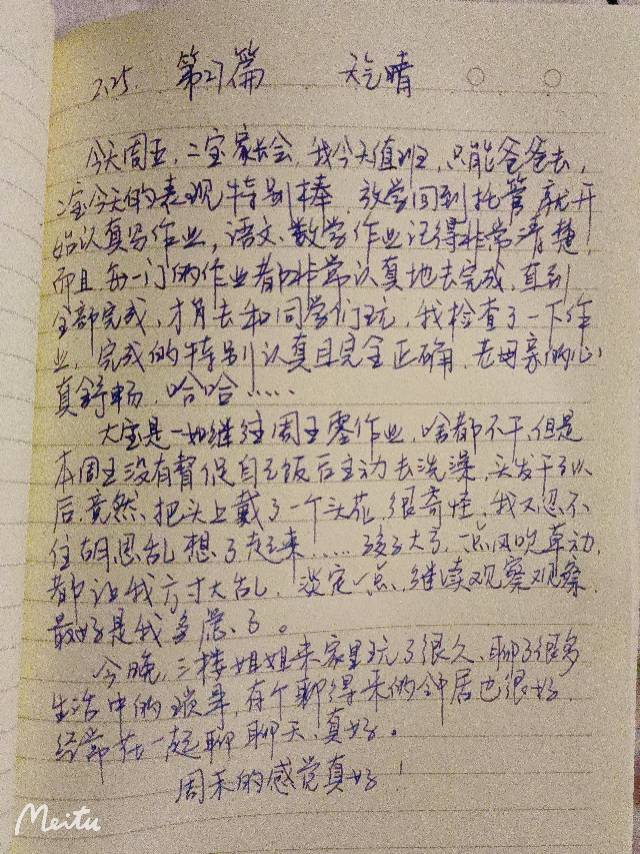 2.25. 第27篇 天气晴
今天周五,二宝家长会,我今天值班,只能爸爸去,
二宝今天的表现特别棒,放学回到托管就开
始认真写作业,语文、数学作业记得非常清楚,
而且每一门的作业都非常认真地去完成,直到
全部完成,才肯去和同学们玩,我检查了一下作
业,完成的特别认真且完全正确,老母亲的心
真舒畅,哈哈……
大宝是一如继往周五零作业,啥都不干,但是
本周五没有督促自己饭后主动去洗澡,头发干了以
后,竟然把头上戴了一个头花,很奇怪,我又忍不
住胡思乱想了起来……孩子大了,一点风吹草动,
都让我方寸大乱,淡定一点,继续观察观察,
最好是我多虑了。
今晚,三楼姐姐来家里玩了很久、聊了很多
生活中的琐事,有个聊得来的邻居也很好,
经常在一起聊聊天,真好。
周末的感觉真好!
Meitu